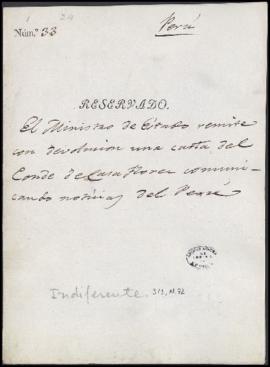 24
Perú
Núm.º 33
RESERVADO.
El Ministro de Estado remite
con devolucion una carta del
Conde de Casa Flores comuni-
cando noticias del Perú
Indiferente. 313, N.72